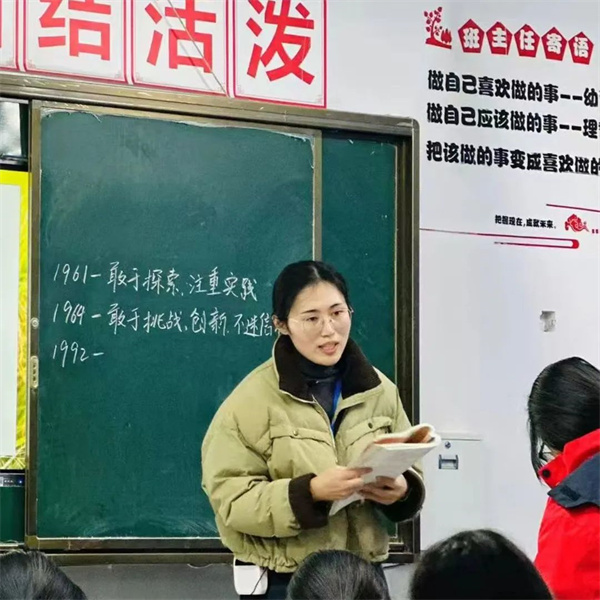 结活泼
班主任寄语
做自己喜欢做的事--幼
做自己应该做的事--理
把该做的事变成喜欢做的
把握现在,成就未来。
1961-敢于探索、注重实践
1969-敢于挑战、创新、不迷信
1992-